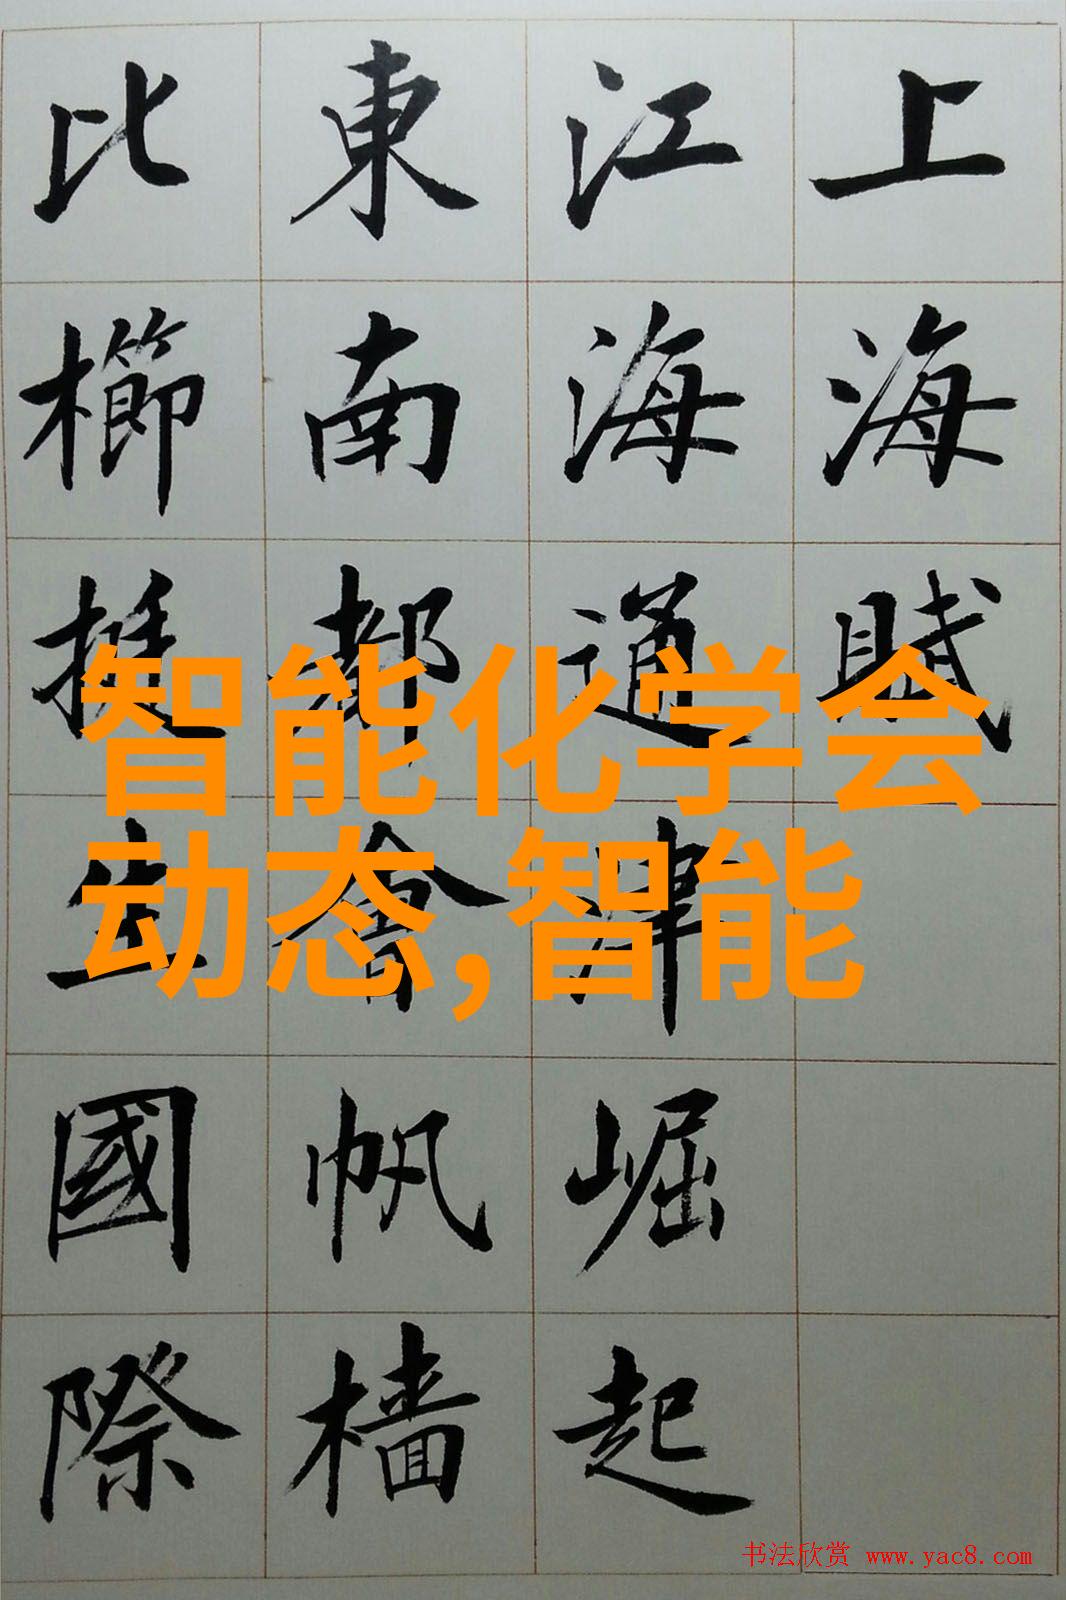 上海賦
江海通津崛起
東南都會帆檣
比櫛挺立國際
智能化学会
动态,智能
书法欣赏 www.yac8.com